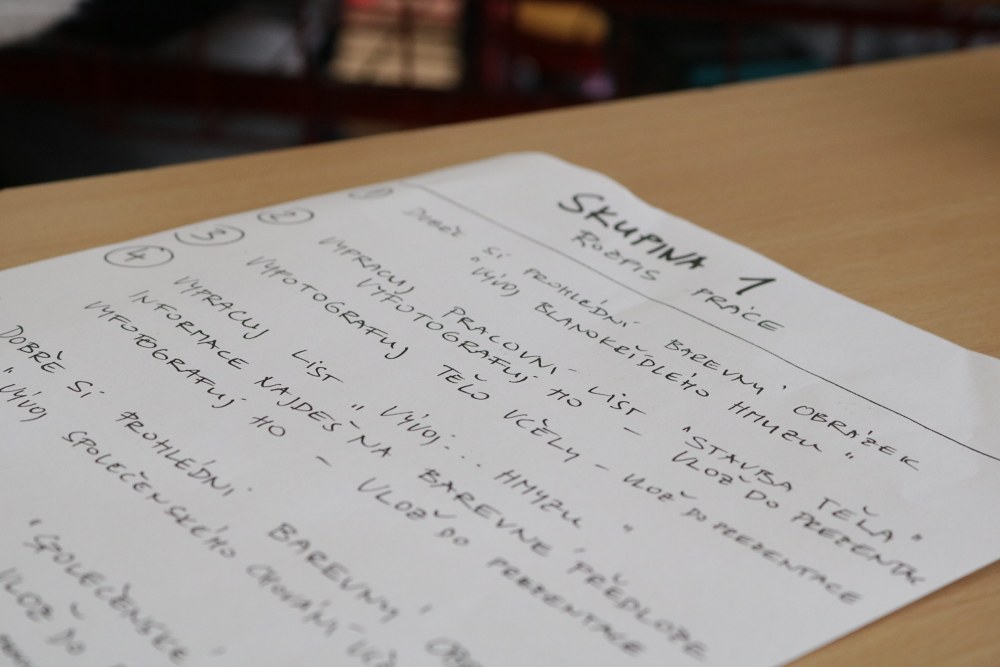 SKUPINA 1
ROZPIS PRÁCE
1 DOBŘE SI PROHLÉDNI BAREVNÝ OBRÁZEK
"VÝVOJ BLANOKŘÍDLÉHO HMYZU"
2 VYPRACUJ PRACOVNÍ LIST "STAVBA TĚLA"
VYFOTOGRAFUJ HO – VLOŽ DO PREZENTAC
3 VYFOTOGRAFUJ TĚLO VČELY – VLOŽ DO PREZENTACE
4 VYPRACUJ LIST "VÝVOJ... HMYZU"
INFORMACE NAJDEŠ NA BAREVNÉ PŘEDLOZE
VYFOTOGRAFUJ HO – VLOŽ DO PREZENTACE
DOBŘE SI PROHLÉDNI BAREVNÝ
"VÝVOJ SPOLEČENSKÉHO CHOVÁNÍ
"SPOLEČENSKÉ
VLOŽ DO